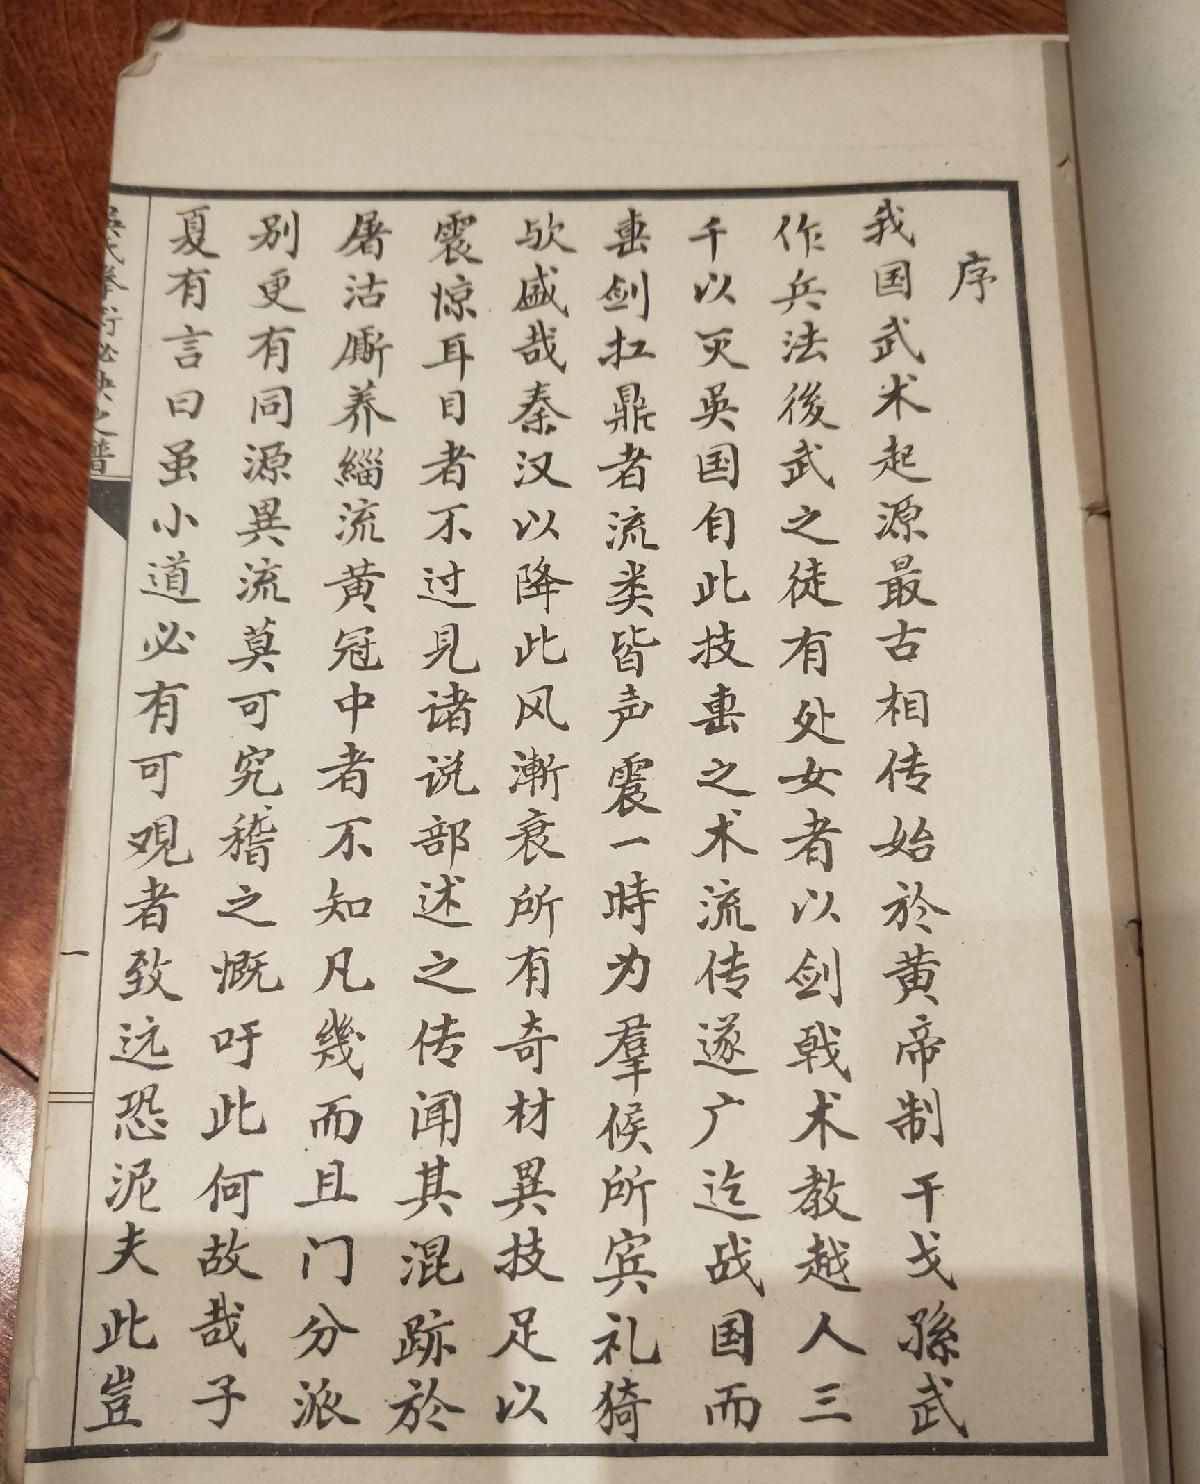 序
我国武术起源最古相传始於黄帝制干戈孫武
作兵法後武之徒有处女者以剑戟术教越人三
千以灭吳国自此技击之术流传遂广迄战国而
击剑扛鼎者流类皆声震一時为羣候所宾礼猗
欤盛哉秦汉以降此风漸衰所有奇材異技足以
震惊耳目者不过见诸说部述之传闻其混跡於
屠沽厮养緇流黄冠中者不知凡幾而且门分派
别更有同源異流莫可究稽之慨吁此何故哉子
夏有言曰虽小道必有可观者致远恐泥夫此豈
吳氏拳術必訣之譜
一